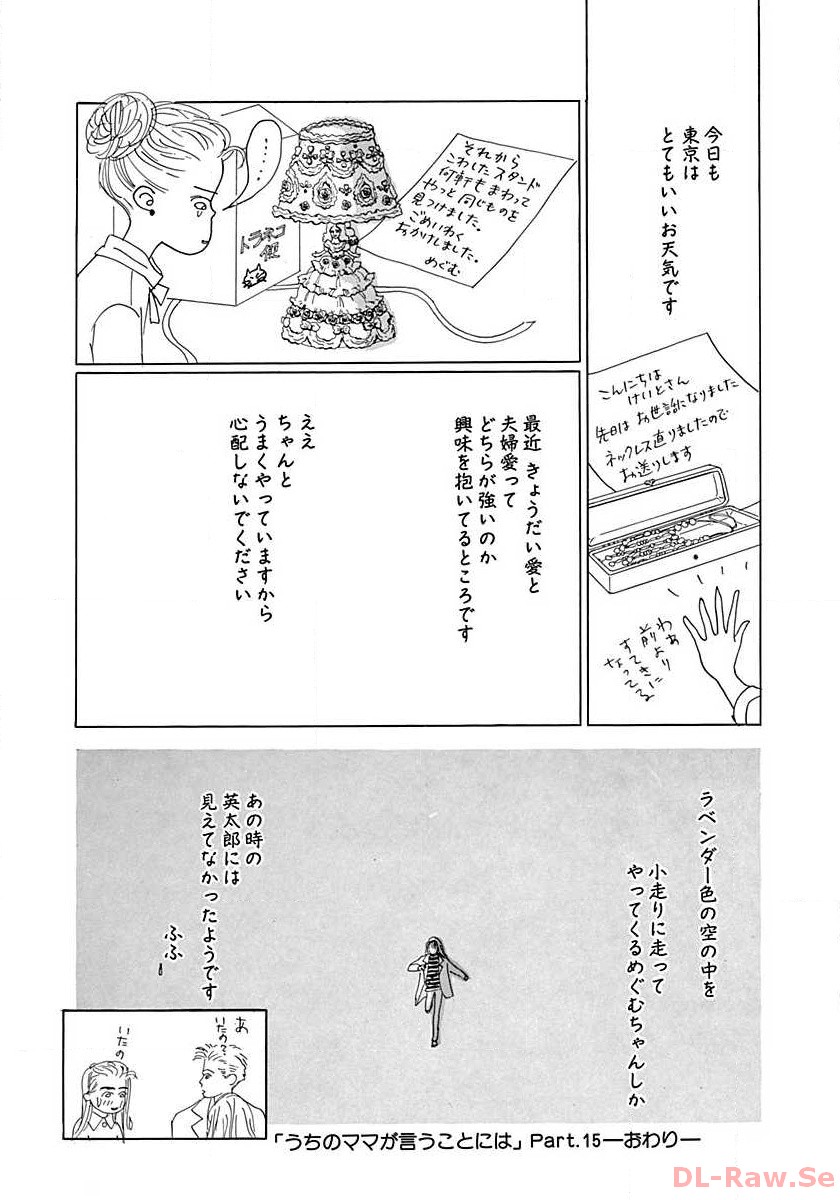 今日も
東京は
とてもいいお天気です
こんにちは
けいとさん
先日は お世話になりました
ネックレス直りましたので
お送りします
わあ
前より
すてきに
なってる
それから
こわしたスタンド
何軒もまわって
やっと同じものを
見つけました。
ごめいわく
おかけしました。
めぐむ
…
トラネコ
便
最近 きょうだい愛と
夫婦愛って
どちらが強いのか
興味を抱いてるところです
ええ
ちゃんと
うまくやっていますから
心配しないでください
ラベンダー色の空の中を
小走りに走って
やってくるめぐむちゃんしか
あの時の
英太郎には
見えてなかったようです
ふふ
あ
いたの?
いたの
「うちのママが言うことには」Part.15―おわり―
DL-Raw.Se